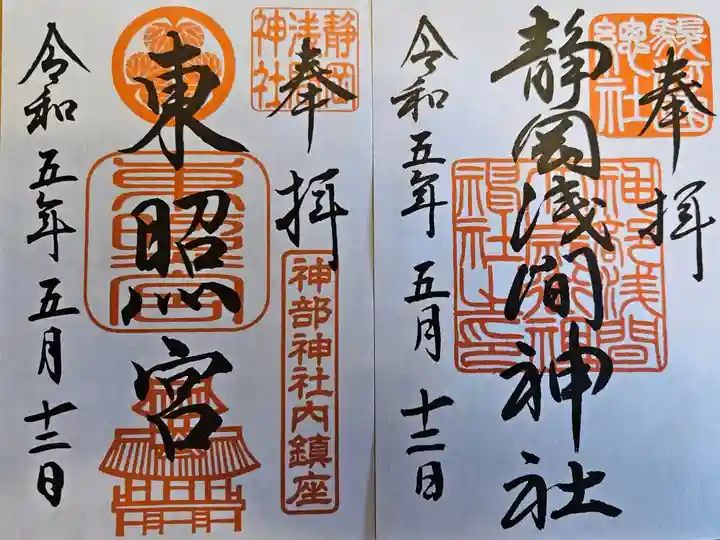 駿府
總社
奉拝
静岡浅間神社
神部浅間
令和五年五月十二日
静岡
浅間
神社
奉拝
神部神社内鎮座
東照宮
東照宮
令和五年五月十二日